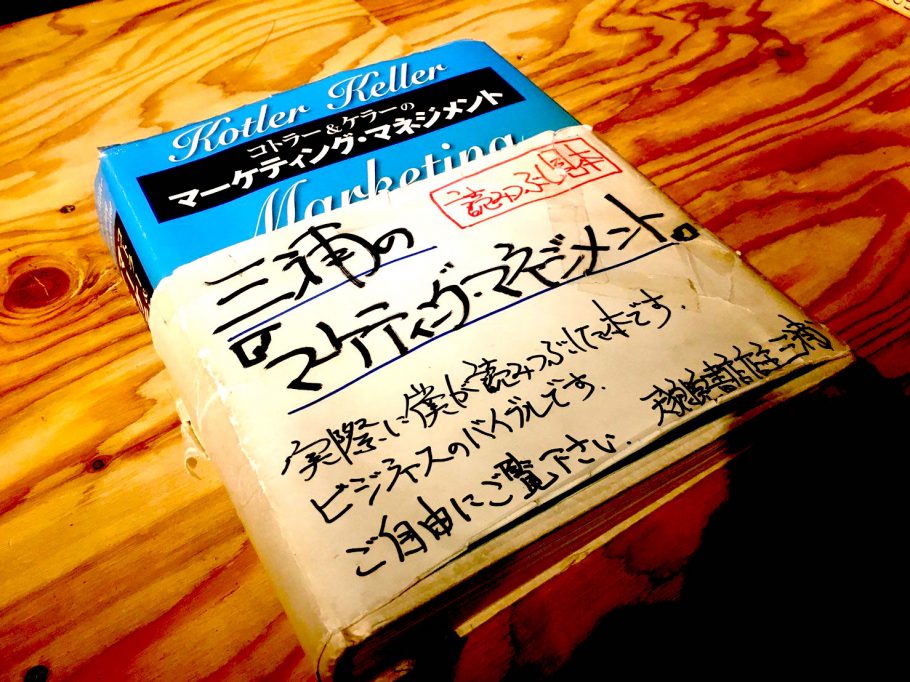 Kotler Keller
コトラー&ケラーの
マーケティング・マネジメント
Marketing
読みつぶし
三浦の
『マーケティング・マネジメント』
実際に僕が読みつぶした本です.
ビジネスのバイブルです.
ご自由にご覧下さい.
書店店主 三浦